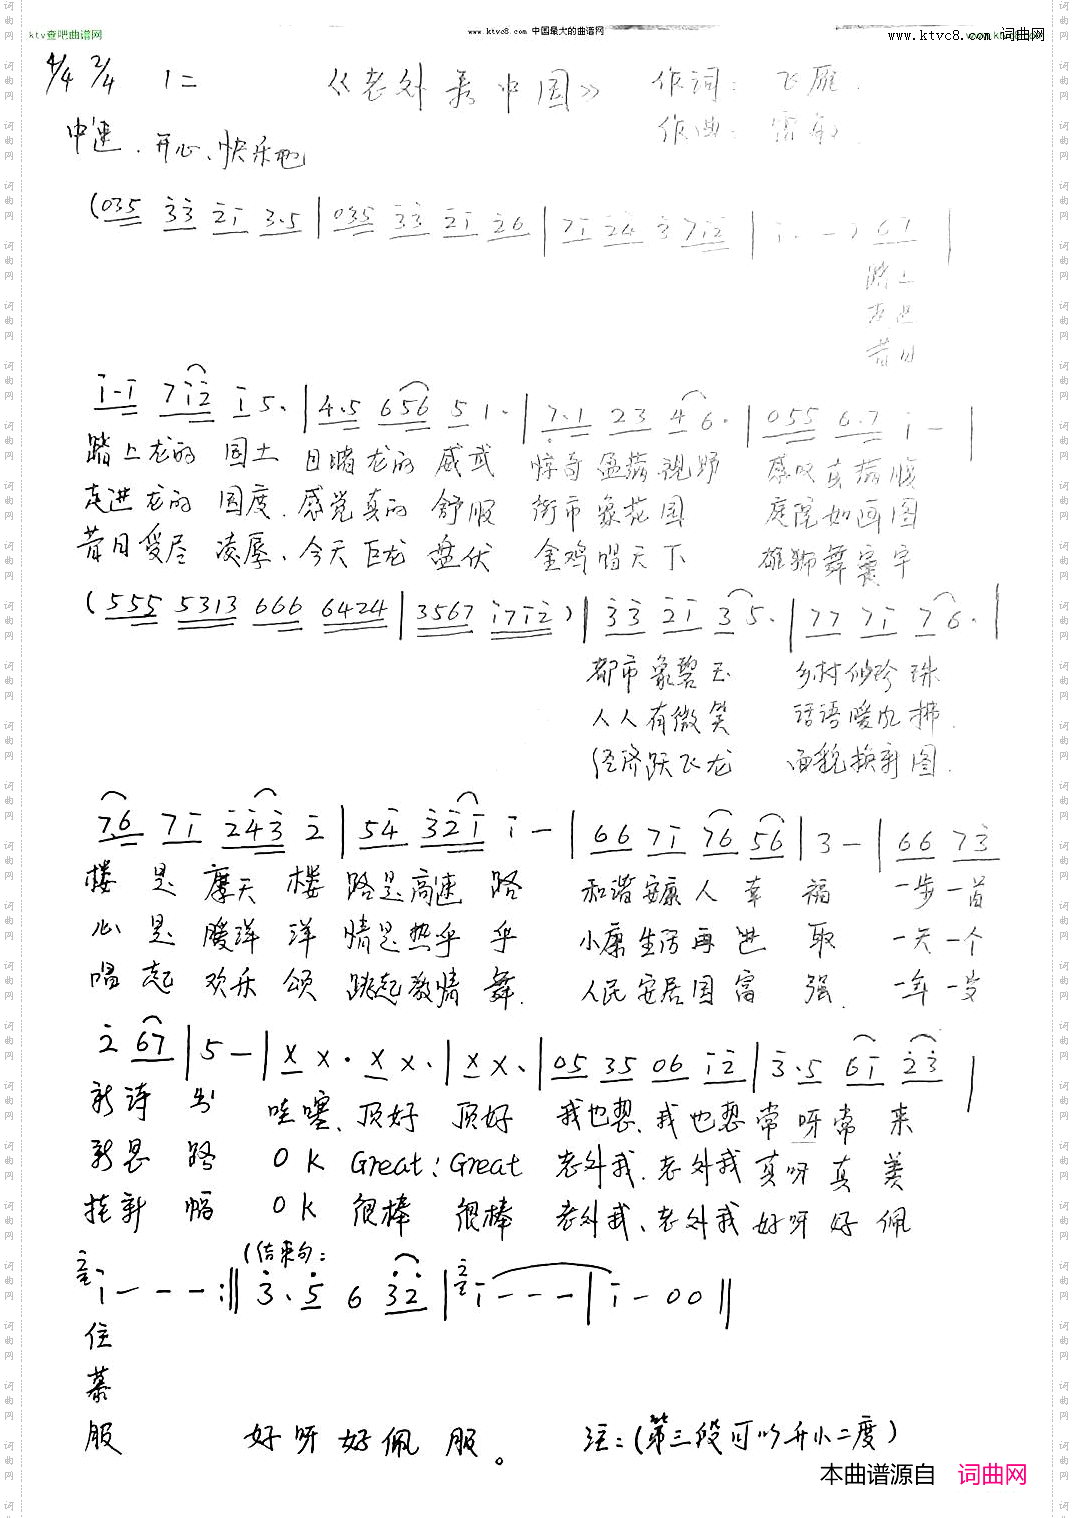 ktv查吧曲谱网
www.ktvc8.com 中国最大的曲谱网
www.ktvc8.com 词曲网
4/4 2/4 1= 《老外看中国》 作词：飞雁
作曲：雷
中速、开心、快乐地
(035 33 21 3.5 | 035 33 21 26 | 71 24 3 712 | 1. - 67 |
踏上
走进
昔日
1.1 712 1 5. | 4.5 656 5 1. | 7.1 23 4 6. | 055 6.7 1 - |
踏上龙的 国土 目睹龙的 威武 惊奇 盈满视野 感叹
走进龙的 国度、感觉真的 舒服 街市象花园 庭院如画图
昔日受尽 凌辱、今天巨龙 盘伏 金鸡唱天下 雄狮舞寰宇
(555 5313 666 6424 | 3567 1712) | 33 21 3 5. | 77 71 7 6. |
都市象碧玉 乡村似珍珠
人人有微笑 话语暖风拂
经济跃飞龙 面貌换新图
76 71 243 2 | 54 321 1 - | 66 71 76 56 | 3 - | 66 73
楼是摩天楼 路是高速路 和谐安康人幸福 一步一首
心是暖洋洋 情是热乎乎 小康生活再进取 一天一个
唱起欢乐颂 跳起激情舞 人民安居国富强 一年一岁
2 67 | 5 - | X X. X X. | X X. | 05 35 06 12 | 3.5 61 23 |
新诗出 哇噻、顶好 顶好 我也想、我也想常呀常来
新思路 OK Great! Great 老外我、老外我真呀真羡
新幅 OK 很棒 很棒 老外我、老外我好呀好佩
1 - - - :|| (结束句: 3. 5 6 32 | 1 - - - | 1 - 0 0 ||
住
慕
服 好呀好佩服。 注：(第三段可以升小二度)
本曲谱源自 词曲网